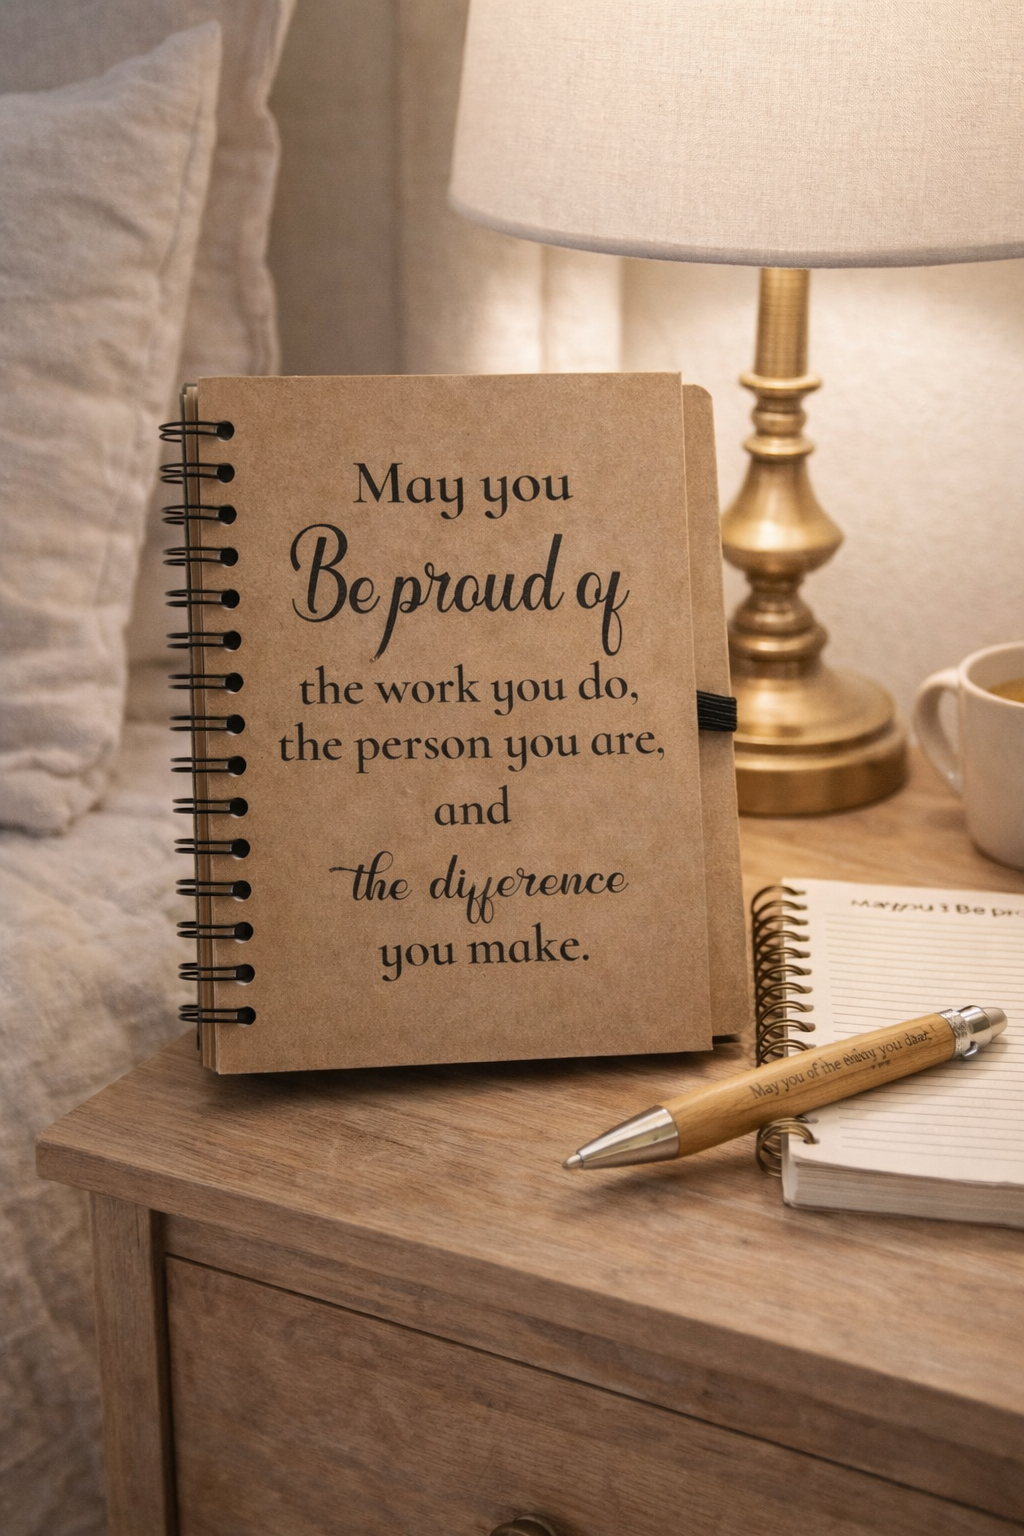 May you
Be proud of
the work you do,
the person you are,
and
the difference
you make.
Be pro
May you of the you